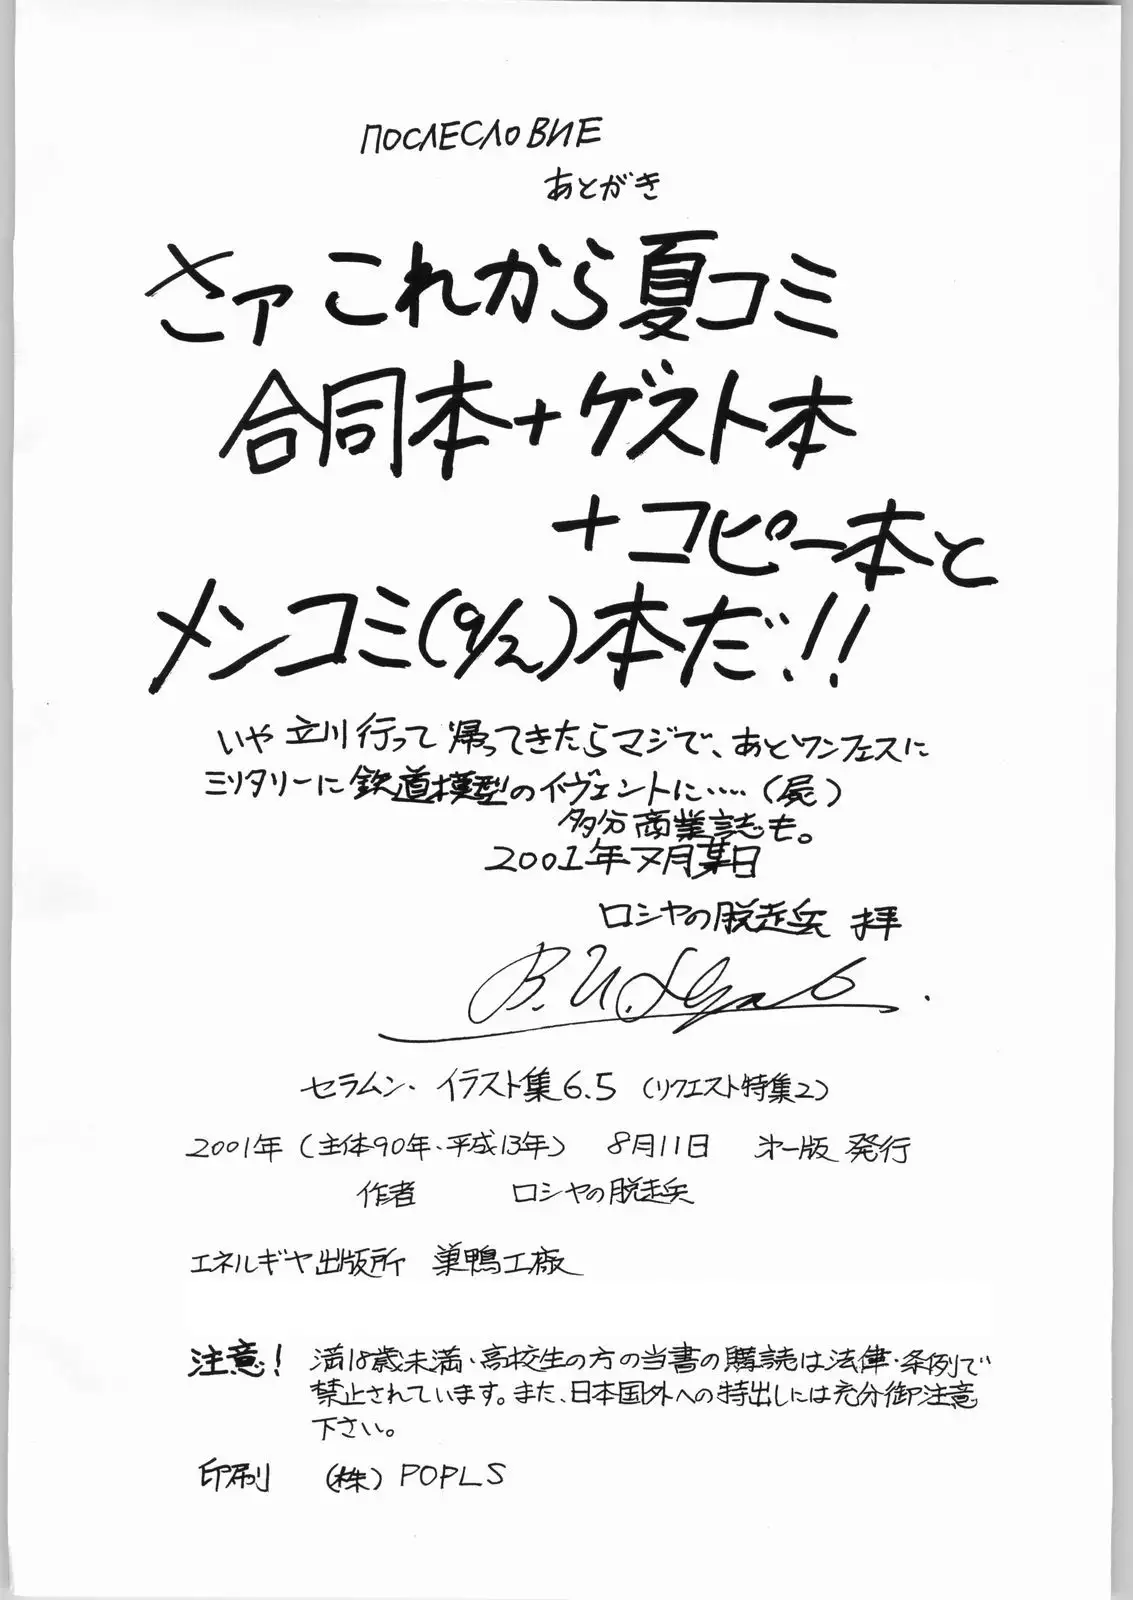 ПОСЛЕСЛОВИЕ
あとがき
さァ これから夏コミ
合同本+ゲスト本
+コピー本と
メンコミ(9/2)本だ!!
いや 立川行って帰ってきたらマジで、あとワンフェスに
ミリタリーに鉄道模型のイヴェントに……(屍)
多分商業誌も。
2001年7月某日
ロシヤの脱走兵 拝
セラムン・イラスト集6.5 (リクエスト特集2)
2001年(主体90年・平成13年) 8月11日 㐧一版 発行
作者 ロシヤの脱走兵
エネルギヤ出版所 巣鴨工廠
注意! 満18歳未満・高校生の方の当書の購読は法律・条例で
禁止されています。また、日本国外への持出しには充分御注意
下さい。
印刷 (株) POPLS